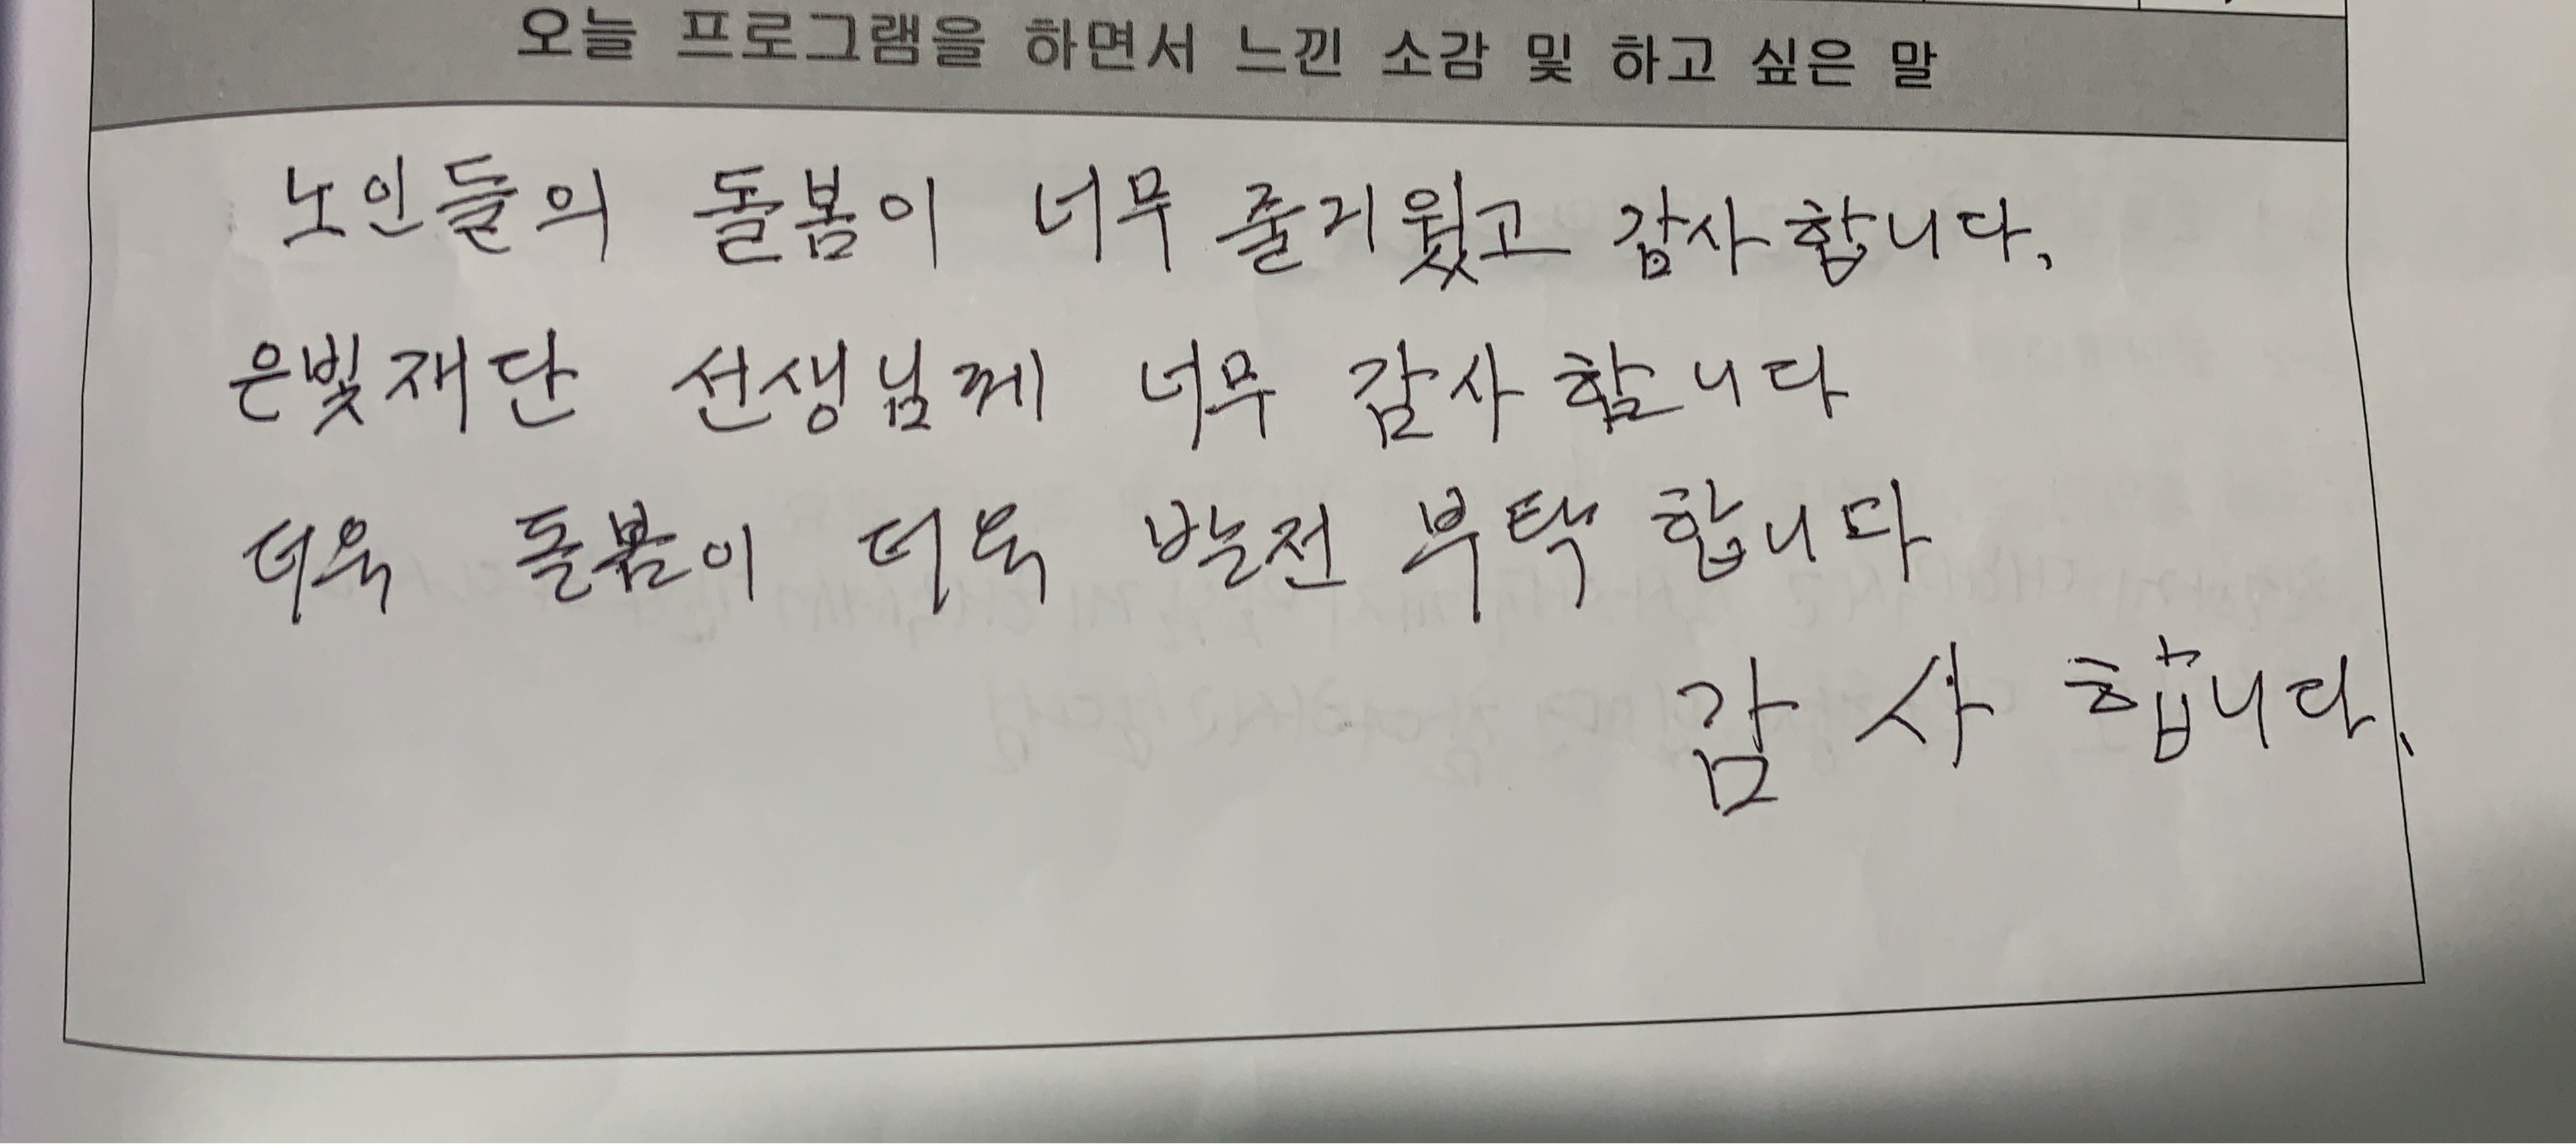 오늘 프로그램을 하면서 느낀 소감 및 하고 싶은 말
노인들의 돌봄이 너무 줄거웠고 감사합니다.
은빛재단 선생님께 너무 감사합니다
더욱 돌봄이 더욱 발전 부탁합니다
감사합니다.